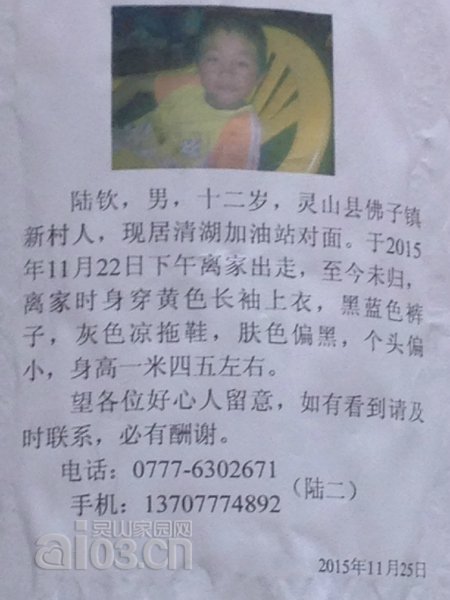 陆钦，男，十二岁，灵山县佛子镇
新村人，现居清湖加油站对面。于2015
年11月22日下午离家出走，至今未归，
离家时身穿黄色长袖上衣，黑蓝色裤
子，灰色凉拖鞋，肤色偏黑，个头偏
小，身高一米四五左右。
望各位好心人留意，如有看到请及
时联系，必有酬谢。
电话：0777-6302671
手机：13707774892
（陆二）
灵山家园网
aio3.cn
2015年11月25日